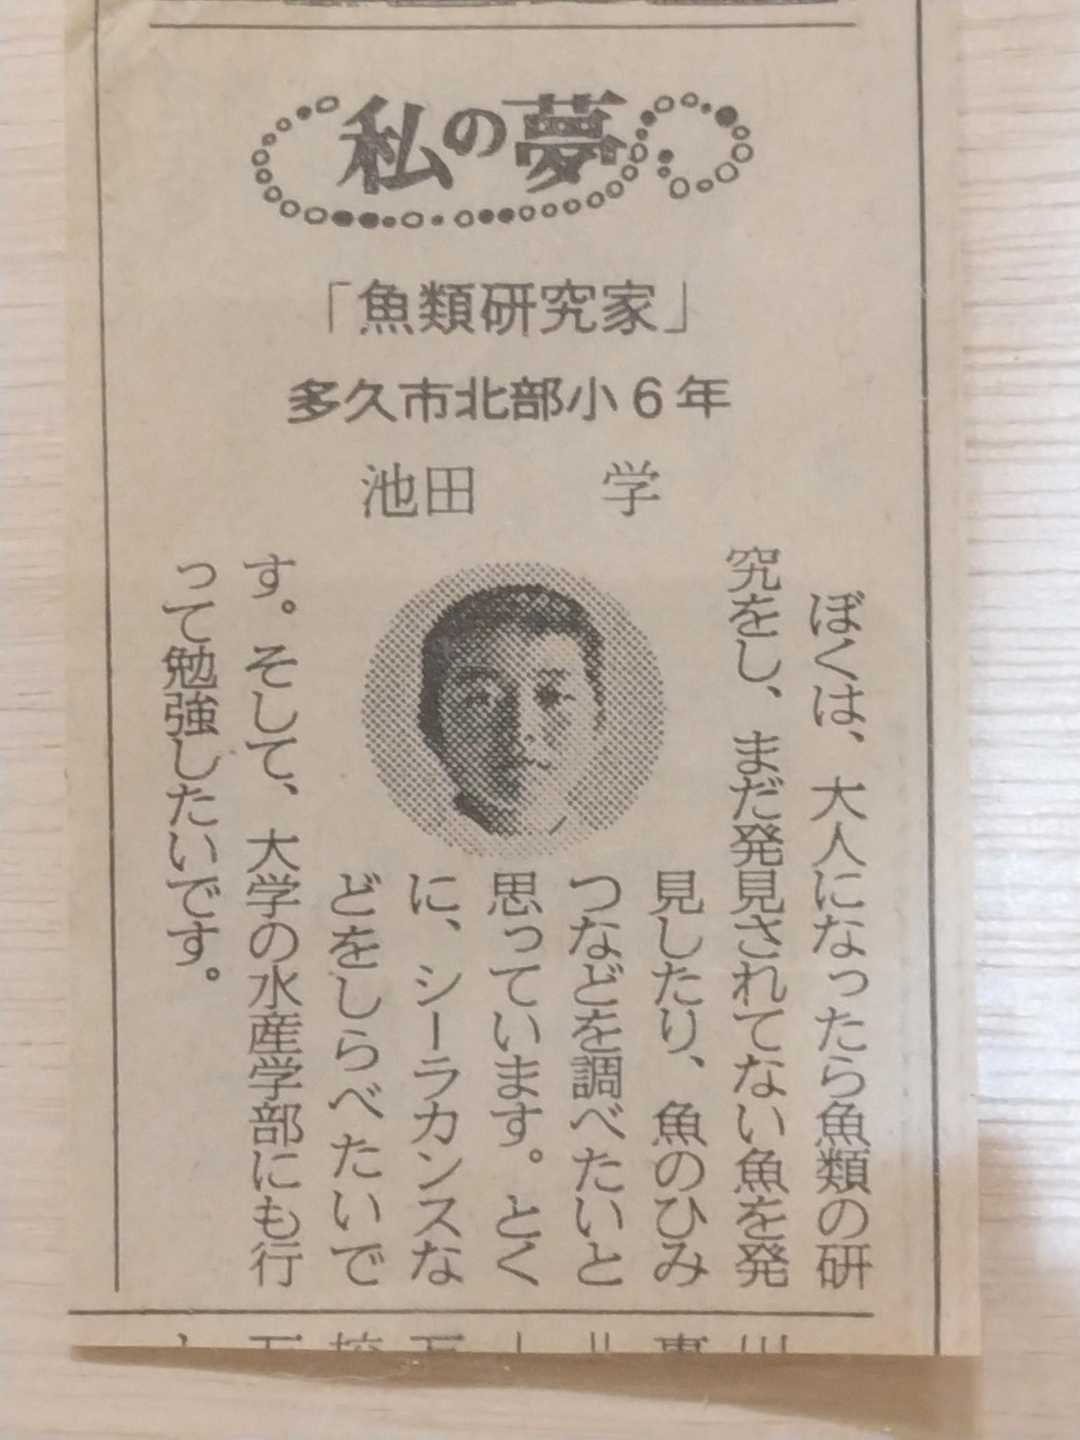 私の夢
「魚類研究家」
多久市北部小6年
池田 学
ぼくは、大人になったら魚類の研
究をし、まだ発見されてない魚を発
見したり、魚のひみ
つなどを調べたいと
思っています。とく
に、シーラカンスな
どをしらべたいで
す。そして、大学の水産学部にも行
って勉強したいです。